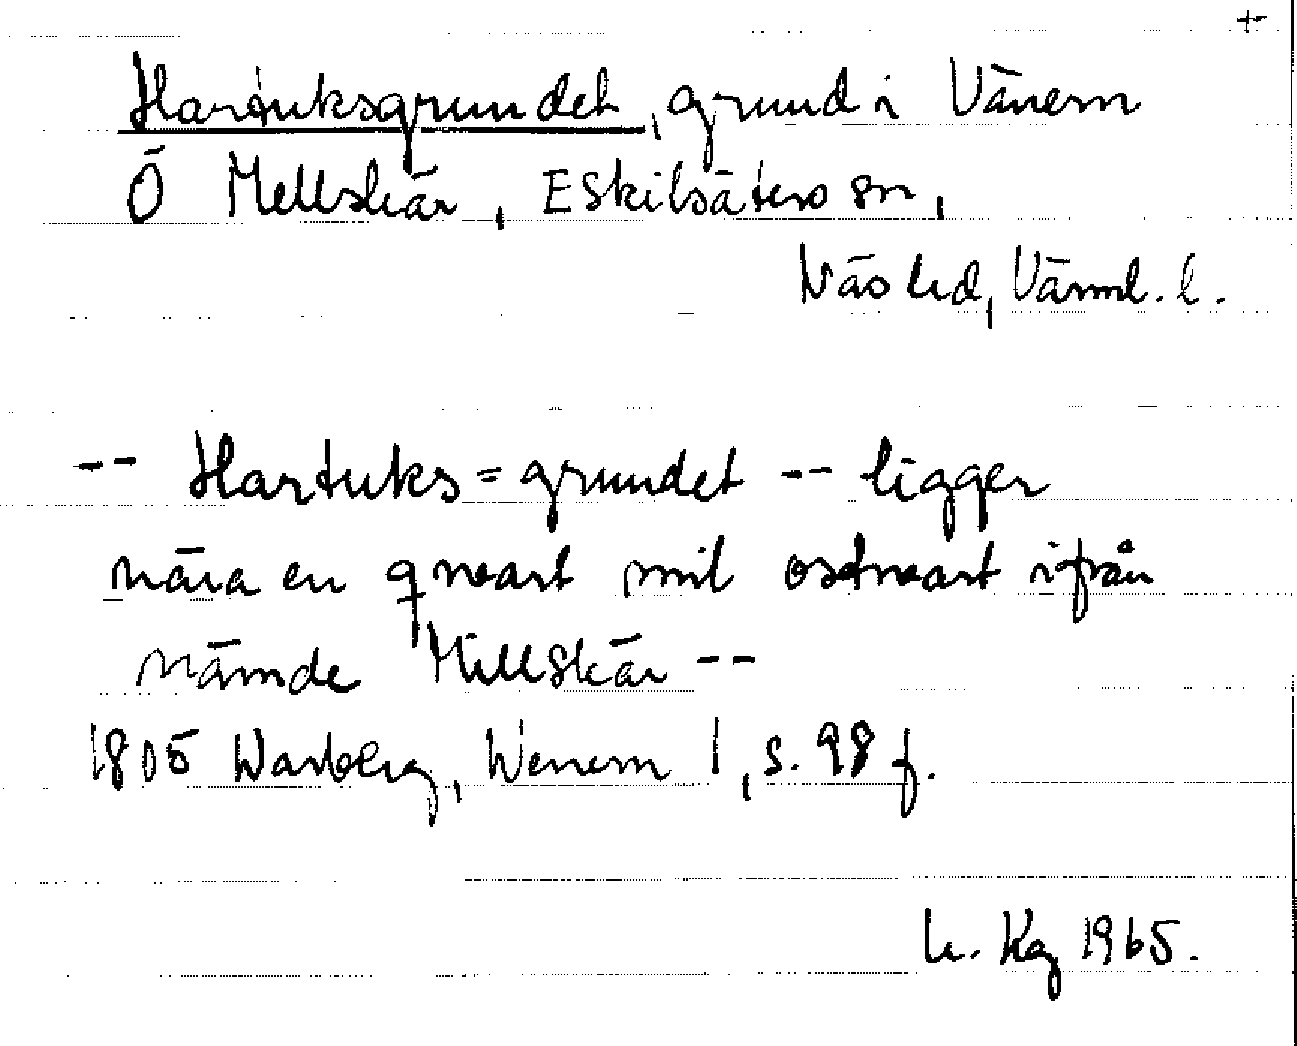 +
Hartuksgrundet, grund i Vänern
Ö Mellskär, Eskilsäters sn,
Näs hd, Värml. l.
-- Hartuks=grundet -- ligger
nära en qvart mil ostvart ifrån
nämde Millskär --
1805 Warberg, Wenern 1, s. 98 f.
Kg 1965.